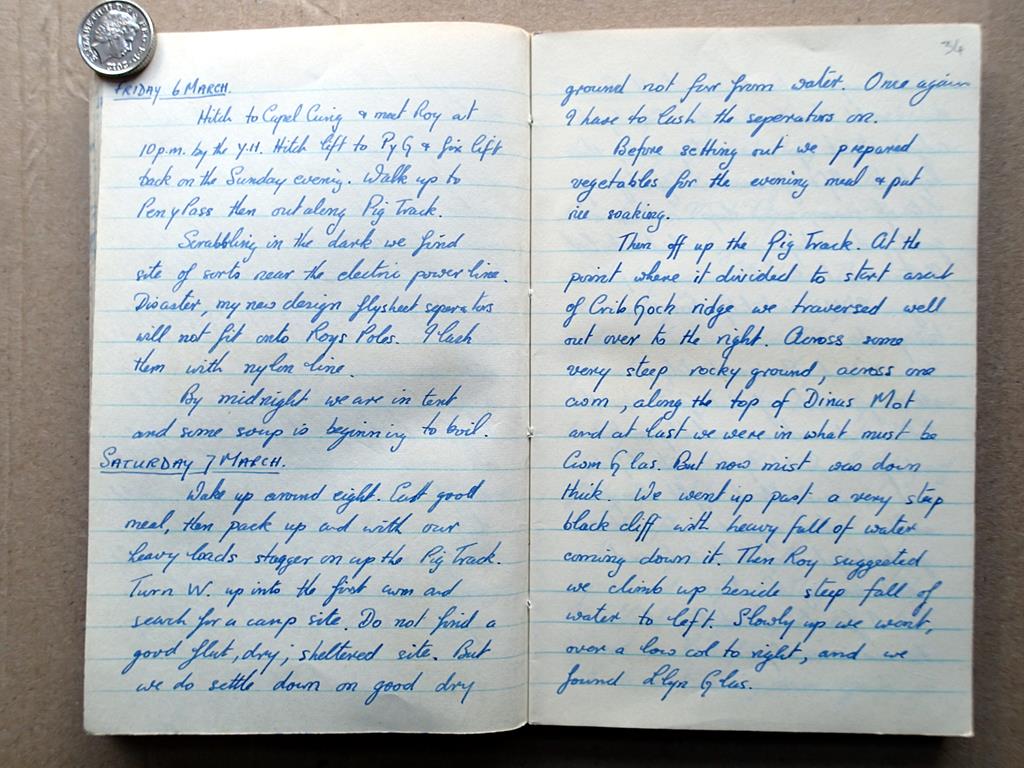 FRIDAY 6 MARCH.
Hitch to Capel Curig & meet Roy at
10p.m. by the Y.H. Hitch lift to PyG & fix lift
back on the Sunday evenig. Walk up to
PenyPass then out along Pig Track.
Scrabbling in the dark we find
site of sorts near the electric power line.
Disaster, my new design flysheet seperators
will not fit onto Roys Poles. I lash
them with nylon line.
By midnight we are in tent
and some soup is beginning to boil.
SATURDAY 7 MARCH.
Wake up around eight. Eat good
meal, then pack up and with our
heavy loads stagger on up the Pig Track.
Turn W. up into the first cwm and
search for a camp site. Do not find a
good flat, dry, sheltered site. But
we do settle down on good dry
3/4
ground not far from water. Once again
I have to lash the seperators on.
Before setting out we prepared
vegetables for the evening meal & put
rice soaking.
Then off up the Pig Track. At the
point where it divided to start ascent
of Crib Goch ridge we traversed well
out over to the right. Across some
very steep rocky ground, across one
cwm, along the top of Dinas Mot
and at last we were in what must be
Cwm Glas. But now mist was down
thick. We went up past a very steep
black cliff with heavy fall of water
coming down it. Then Roy suggested
we climb up beside steep fall of
water to left. Slowly up we went,
over a low col to right, and we
found Llyn Glas.